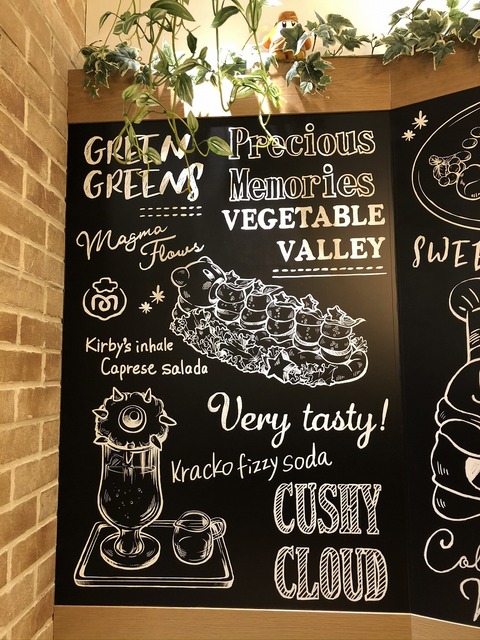 GREEN
GREENS
Precious
Memories
VEGETABLE
VALLEY
Magma
Flows
Kirby's inhale
Caprese salada
Very tasty!
Kracko fizzy soda
CUSHY
CLOUD
SWEE
Co